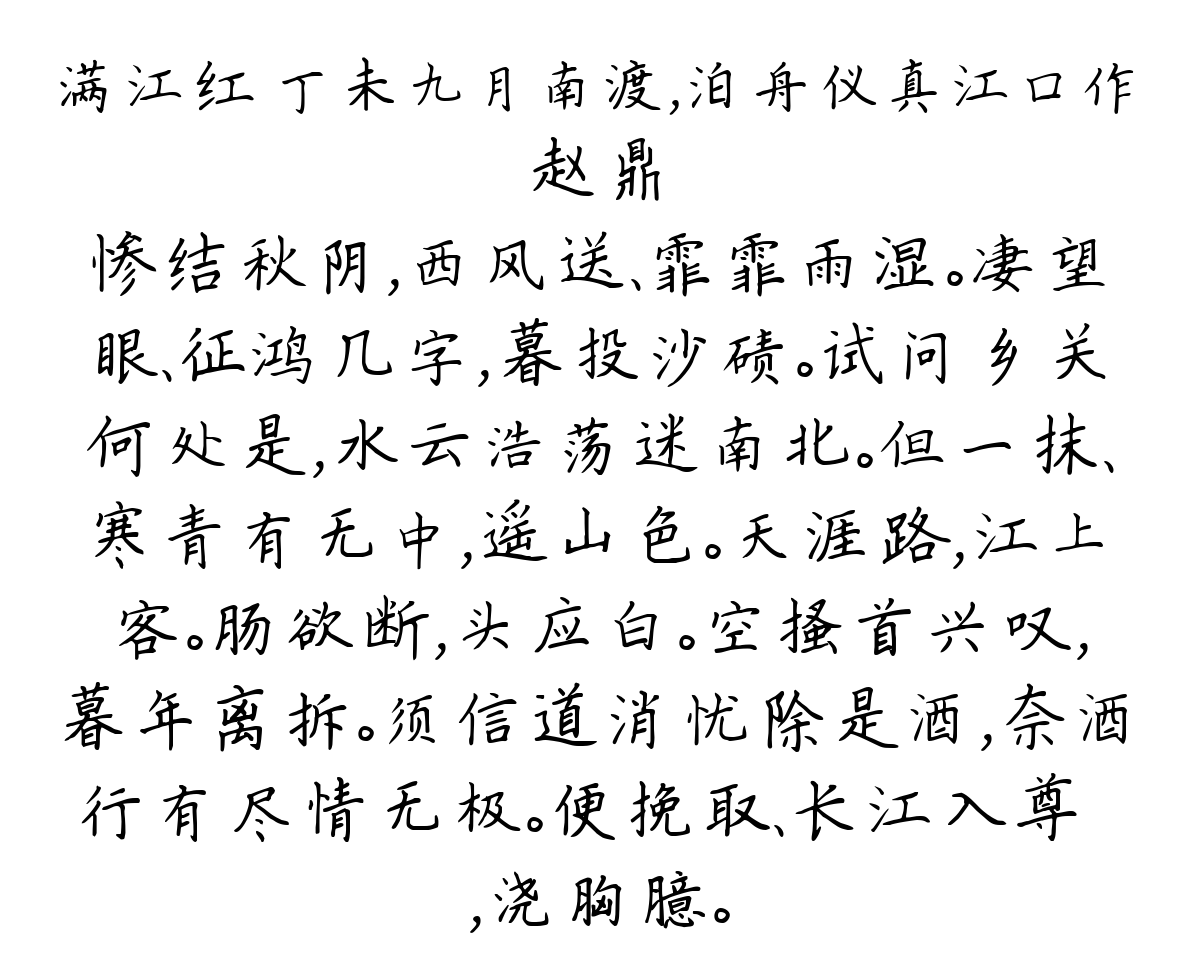 满江红 丁未九月南渡,泊舟仪真江口作
赵鼎
惨结秋阴,西风送、霏霏雨湿。凄望
眼、征鸿几字,暮投沙碛。试问乡关
何处是,水云浩荡迷南北。但一抹、
寒青有无中,遥山色。天涯路,江上
客。肠欲断,头应白。空搔首兴叹,
暮年离拆。须信道消忧除是酒,奈酒
行有尽情无极。便挽取、长江入尊
,浇胸臆。